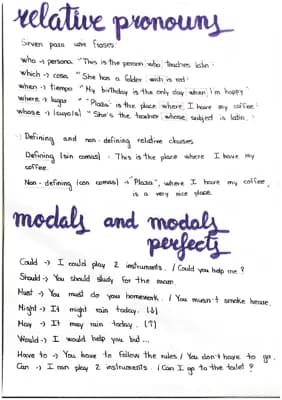 relative pronouns
Sirven para unir frases:
who → persona "This is the person who teaches latin."
which → cosa "She has a folder wich is red."
when → tiempo "My birthday is the only day when I'm happy."
where → lugar "Plaza" is the place where I have my coffee.
whose → (cuyo/a) "She's the teacher whose subject is latin."
Defining and non-defining relative clauses.
Defining (sin comas). This is the place where I have my
coffee.
Non-defining (con comas) → "Plaza", where I have my coffee,
is a very nice place.
modals and modals
perfects
Could → I could play 2 instruments. / Could you help me?
Should → You should study for the exam.
Must → You must do your homework. / You musn't smoke
Might → It might rain today. (↓)
May → It may rain today. (↑)
Would → I would help you but...
Have to → You have to follow the rules / You don't have to go.
Can → I can play 2 instruments. / Can I go to the toilet?